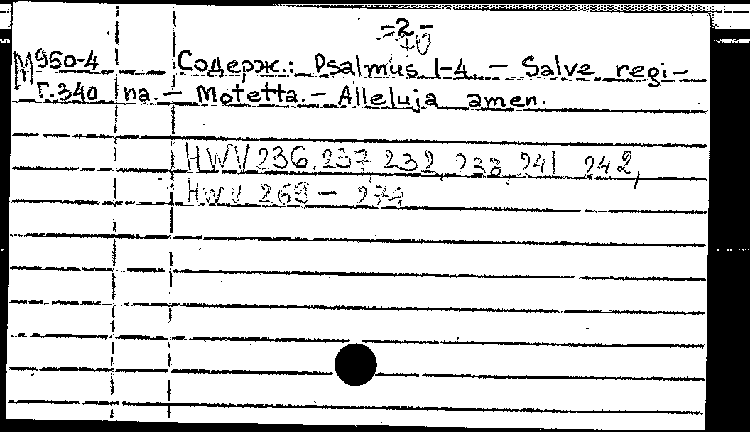 -2-
М950-4 Содерж.: Psalmus 1-4. - Salve regi-
Г.340 na. - Motetta. - Alleluja amen.
HWV 236, 237, 232, 238, 241 242,
HWV 269 -